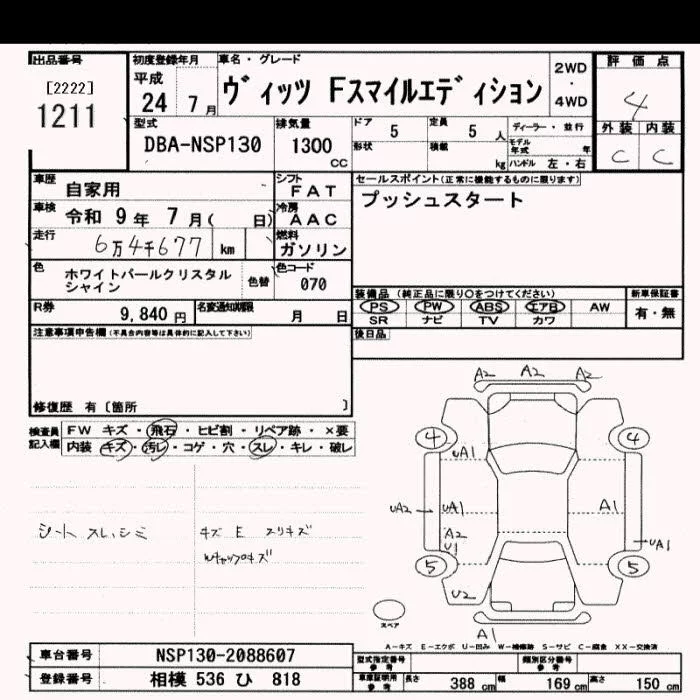 出品番号
[2222]
1211
初度登録年月
平成
24 7月
車名・グレード
ヴィッツ Fスマイルエディション
2WD
・
4WD
評価点
4
外装 内装
C C
型式
DBA-NSP130
排気量
1300
cc
ドア 5
定員 5 人
形状
積載 kg
ディーラー・並行
モデル年式 年
ハンドル 左・右
車歴 自家用
シフト FAT
車検 令和 9年 7月( 日)
冷房 AAC
走行 6万4千677 km
燃料 ガソリン
色 ホワイトパールクリスタルシャイン
色替
色コード 070
R券 9,840 円
名変通知期限 月 日
セールスポイント(正常に機能するものに限ります)
プッシュスタート
装備品 (純正品に限り○をつけてください)
PS PW ABS エアB AW
SR ナビ TV カワ
新車保証書
有・無
後日品
注意事項申告欄(不具合内容等は具体的に記入して下さい)
修復歴 有〔箇所 〕
検査員記入欄
FW キズ・飛石・ヒビ割・リペア跡・×要
内装 キズ・汚レ・コゲ・穴・スレ・キレ・破レ
シート スレ、シミ
キズ E スリキズ
Wキャップキズ
A2 A2 A2
4 4
UA1
UA2 UA1 A1
A2
U1 UA1
5 5
U2
A1
スペア
A-キズ E-エクボ U-凹み W-補修跡 S-サビ C-腐食 XX-交換済
車台番号 NSP130-2088607
登録番号 相模 536 ひ 818
型式指定番号
参考
類別区分番号
参考
車庫証明用
参考
長さ 388 cm 幅 169 cm 高さ 150 cm